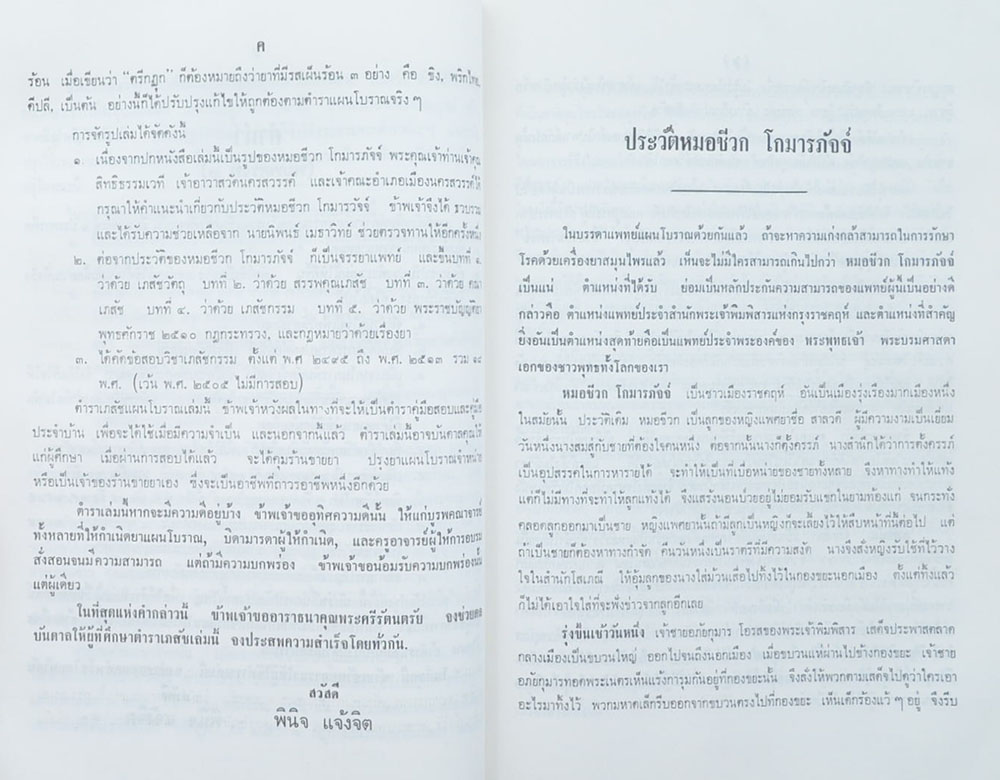 ค
ร้อน เมื่อเขียนว่า "ตรีกฏุก" ก็ต้องหมายถึงว่ายาที่มีรสเผ็ดร้อน ๓ อย่าง คือ ขิง, พริกไทย,
ดีปลี, เป็นต้น อย่างนี้ก็ได้ปรับปรุงแก้ไขให้ถูกต้องตามตำราแผนโบราณจริง ๆ
การจัดรูปเล่มได้จัดดังนี้
๑. เนื่องจากปกหนังสือเล่มนี้เป็นรูปของหมอชีวก โกมารภัจจ์ พระคุณเจ้าท่านเจ้าคุณ
สิทธิธรรมเวที เจ้าอาวาสวัดนครสวรรค์ และเจ้าคณะอำเภอเมืองนครสวรรค์ให้
กรุณาให้คำแนะนำเกี่ยวกับประวัติหมอชีวก โกมารวัจจ์ ข้าพเจ้าจึงได้ รวบรวม
และได้รับความช่วยเหลือจาก นายนิพนธ์ เมธาวิทย์ ช่วยตรวจทานให้อีกครั้งหนึ่ง
๒. ต่อจากประวัติของหมอชีวก โกมารภัจจ์ ก็เป็นจรรยาแพทย์ และขึ้นบทที่ ๑.
ว่าด้วย เภสัชวัตถุ บทที่ ๒. ว่าด้วย สรรพคุณเภสัช บทที่ ๓. ว่าด้วย คณา
เภสัช บทที่ ๔. ว่าด้วย เภสัชกรรม บทที่ ๕. ว่าด้วย พระราชบัญญัติยา
พุทธศักราช ๒๕๑๐ กฎกระทรวง, และกฎหมายว่าด้วยเรื่องยา
๓. ได้คัดข้อสอบวิชาเภสัชกรรม ตั้งแต่ พ.ศ ๒๔๙๕ ถึง พ.ศ. ๒๕๑๓ รวม
พ.ศ. (เว้น พ.ศ. ๒๕๐๕ ไม่มีการสอบ)
ตำราเภสัชแผนโบราณเล่มนี้ ข้าพเจ้าหวังผลในทางที่จะให้เป็นตำราคู่มือสอบและคู่มือ
ประจำบ้าน เพื่อจะได้ใช้เมื่อมีความจำเป็น และนอกจากนี้แล้ว ตำราเล่มนี้อาจบันดาลคุณให้
แก่ผู้ศึกษา เมื่อผ่านการสอบได้แล้ว จะได้คุมร้านขายยา ปรุงยาแผนโบราณจำหน่าย
หรือเป็นเจ้าของร้านขายยาเอง ซึ่งจะเป็นอาชีพที่ถาวรอาชีพหนึ่งอีกด้วย
ตำราเล่มนี้หากจะมีความดีอยู่บ้าง ข้าพเจ้าขออุทิศความดีนั้น ให้แก่บูรพคณาจารย์
ทั้งหลายที่ให้กำเนิดยาแผนโบราณ, บิดามารดาผู้ให้กำเนิด, และครูอาจารย์ผู้ให้การอบรม
สั่งสอนจนมีความสามารถ แต่ถ้ามีความบกพร่อง ข้าพเจ้าขอน้อมรับความบกพร่องนั้น
แต่ผู้เดียว
ในที่สุดแห่งคำกล่าวนี้ ข้าพเจ้าขออาราธนาคุณพระศรีรัตนตรัย จงช่วยดล
บันดาลให้ผู้ที่ศึกษาตำราเภสัชเล่มนี้ จงประสพความสำเร็จโดยทั่วกัน.
สวัสดี
พินิจ แจ้งจิต
ประวัติหมอชีวก โกมารภัจจ์
ในบรรดาแพทย์แผนโบราณด้วยกันแล้ว ถ้าจะหาความเก่งกล้าสามารถในการรักษา
โรคด้วยเครื่องยาสมุนไพรแล้ว เห็นจะไม่มีใครสามารถเกินไปกว่า หมอชีวก โกมารภัจจ์
เป็นแน่ ตำแหน่งที่ได้รับ ย่อมเป็นหลักประกันความสามารถของแพทย์ผู้นี้เป็นอย่างดี
กล่าวคือ ตำแหน่งแพทย์ประจำสำนักพระเจ้าพิมพิสารแห่งกรุงราชคฤห์ และตำแหน่งที่สำคัญ
ยิ่งอันเป็นตำแหน่งสุดท้ายคือเป็นแพทย์ประจำพระองค์ของ พระพุทธเจ้า พระบรมศาสดา
เอกของชาวพุทธทั้งโลกของเรา
หมอชีวก โกมารภัจจ์ เป็นชาวเมืองราชคฤห์ อันเป็นเมืองรุ่งเรืองมากเมืองหนึ่ง
ในสมัยนั้น ประวัติเดิม หมอชีวก เป็นลูกของหญิงแพศยาชื่อ สาลวดี ผู้มีความงามเป็นเยี่ยม
วันหนึ่งนางสมสู่กับชายที่ต้องใจคนหนึ่ง ต่อจากนั้นนางก็ตั้งครรภ์ นางสำนึกได้ว่าการตั้งครรภ์
เป็นอุปสรรคในการหารายได้ จะทำให้เป็นที่เบื่อหน่ายของชายทั้งหลาย จึงหาทางทำให้แท้ง
แต่ก็ไม่มีทางที่จะทำให้ลูกแท้งได้ จึงแสร้งนอนป่วยอยู่ไม่ยอมรับแขกในยามท้องแก่ จนกระทั่ง
คลอดลูกออกมาเป็นชาย หญิงแพศยานั้นถ้ามีลูกเป็นหญิงก็จะเลี้ยงไว้ให้สืบหน้าที่นี้ต่อไป แต่
ถ้าเป็นชายก็ต้องหาทางกำจัด คืนวันหนึ่งเป็นราตรีที่มีความสงัด นางจึงสั่งหญิงรับใช้ที่ไว้วาง
ใจในสำนักโสเภณี ให้อุ้มลูกของนางใส่ม้วนเสื่อไปทิ้งไว้ในกองขยะนอกเมือง ตั้งแต่ทิ้งแล้ว
ก็ไม่ได้เอาใจใส่ที่จะฟังข่าวจากลูกอีกเลย
รุ่งขึ้นเช้าวันหนึ่ง เจ้าชายอภัยกุมาร โอรสของพระเจ้าพิมพิสาร เสด็จประพาสตลาด
กลางเมืองเป็นขบวนใหญ่ ออกไปจนถึงนอกเมือง เมื่อขบวนแห่ผ่านไปข้างกองขยะ เจ้าชาย
อภัยกุมารทอดพระเนตรเห็นแร้งการุมกันอยู่ที่กองขยะนั้น จึงสั่งให้พวกตามเสด็จไปดูว่าใครเอา
อะไรมาทิ้งไว้ พวกมหาดเล็กรีบออกจากขบวนตรงไปที่กองขยะ เห็นเด็กร้องแว้ ๆ อยู่ จึงรีบ